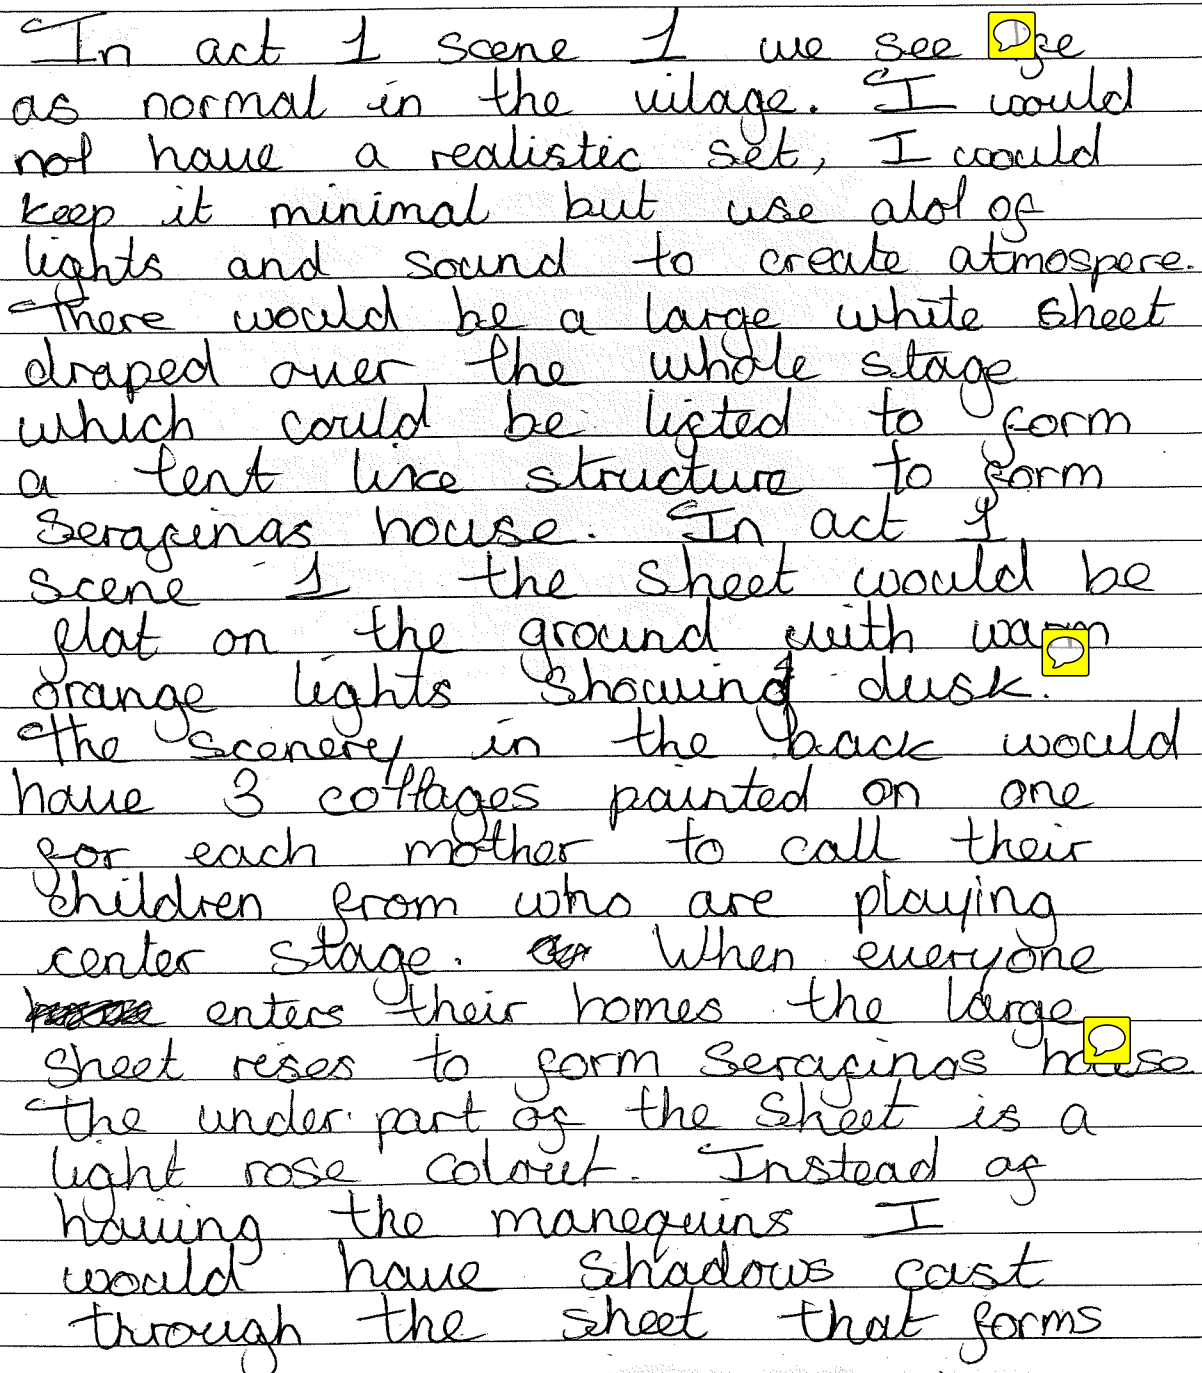 In act 1 scene 1 we see
as normal in the vilage. I would
not have a realistic set, I would
keep it minimal but use alot of
lights and sound to create atmospere.
There would be a large white sheet
draped over the whole stage
which could be lifted to form
a tent like structure to form
Serafinas house. In act 1
scene 1 the sheet would be
flat on the ground with warm
orange lights showing dusk.
The scenery in the back would
have 3 cottages painted on one
for each mother to call their
children from who are playing
center stage. When everyone
enters their homes the large
sheet rises to form Serafinas house
The under part of the sheet is a
light rose colour. Instead of
having the manequins I
would have shadows cast
through the sheet that forms